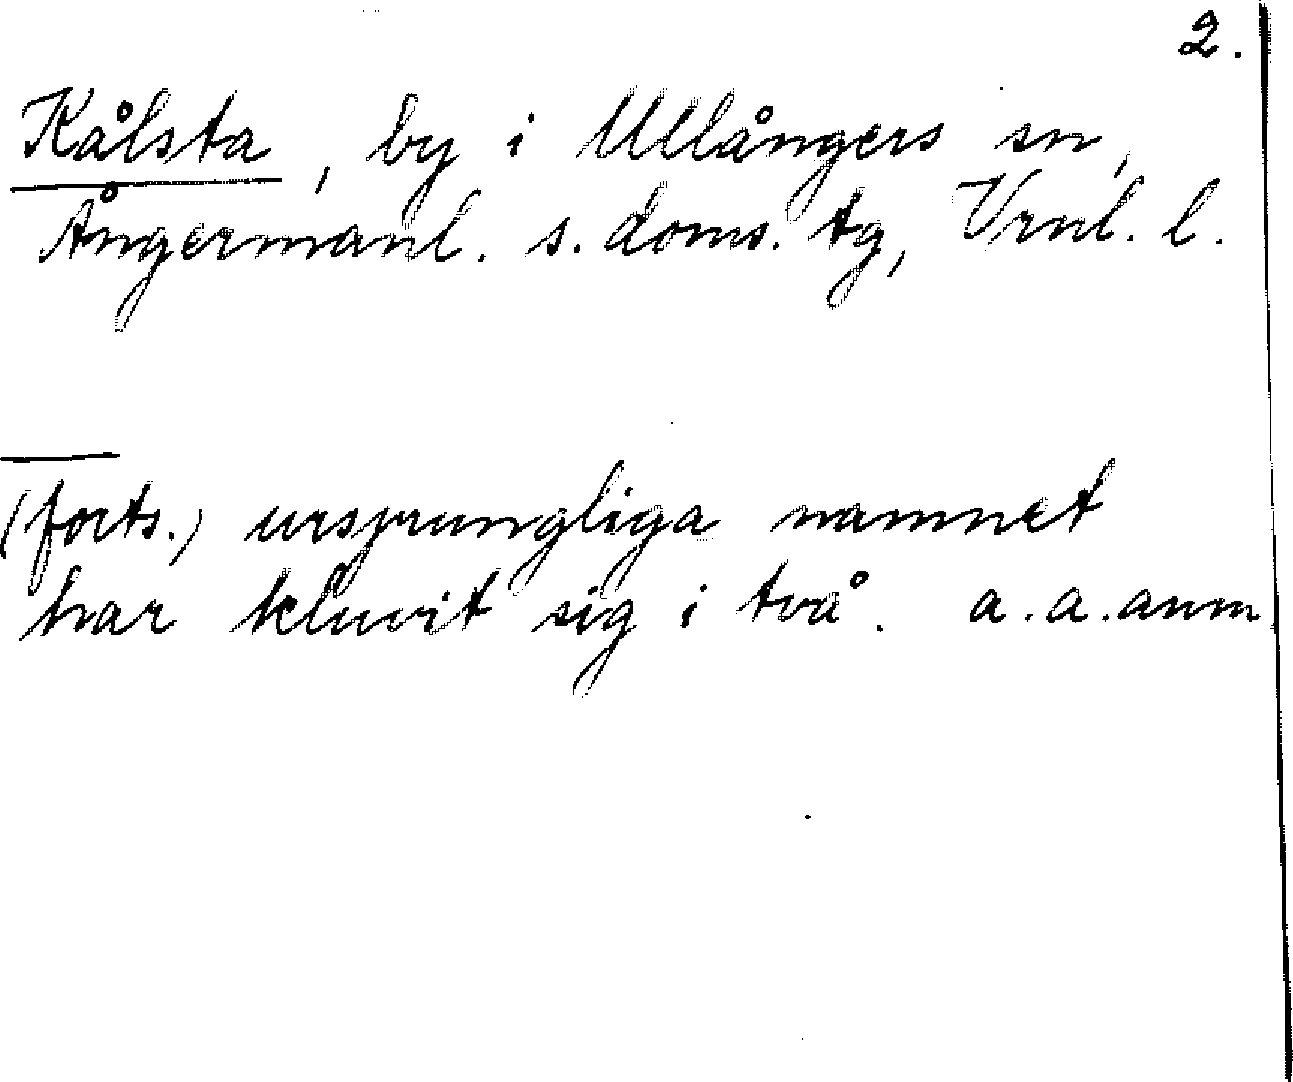 2.
Kålsta, by i Ullångers sn,
Ångermanl. s. doms. tg, Vrnl. l.
(forts.) ursprungliga namnet
har kluvit sig i två. a.a. anm